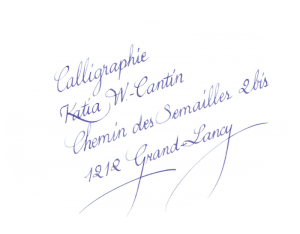 Calligraphie
Katia W-Cantin
Chemin des Semailles 2bis
1212 Grand-Lancy